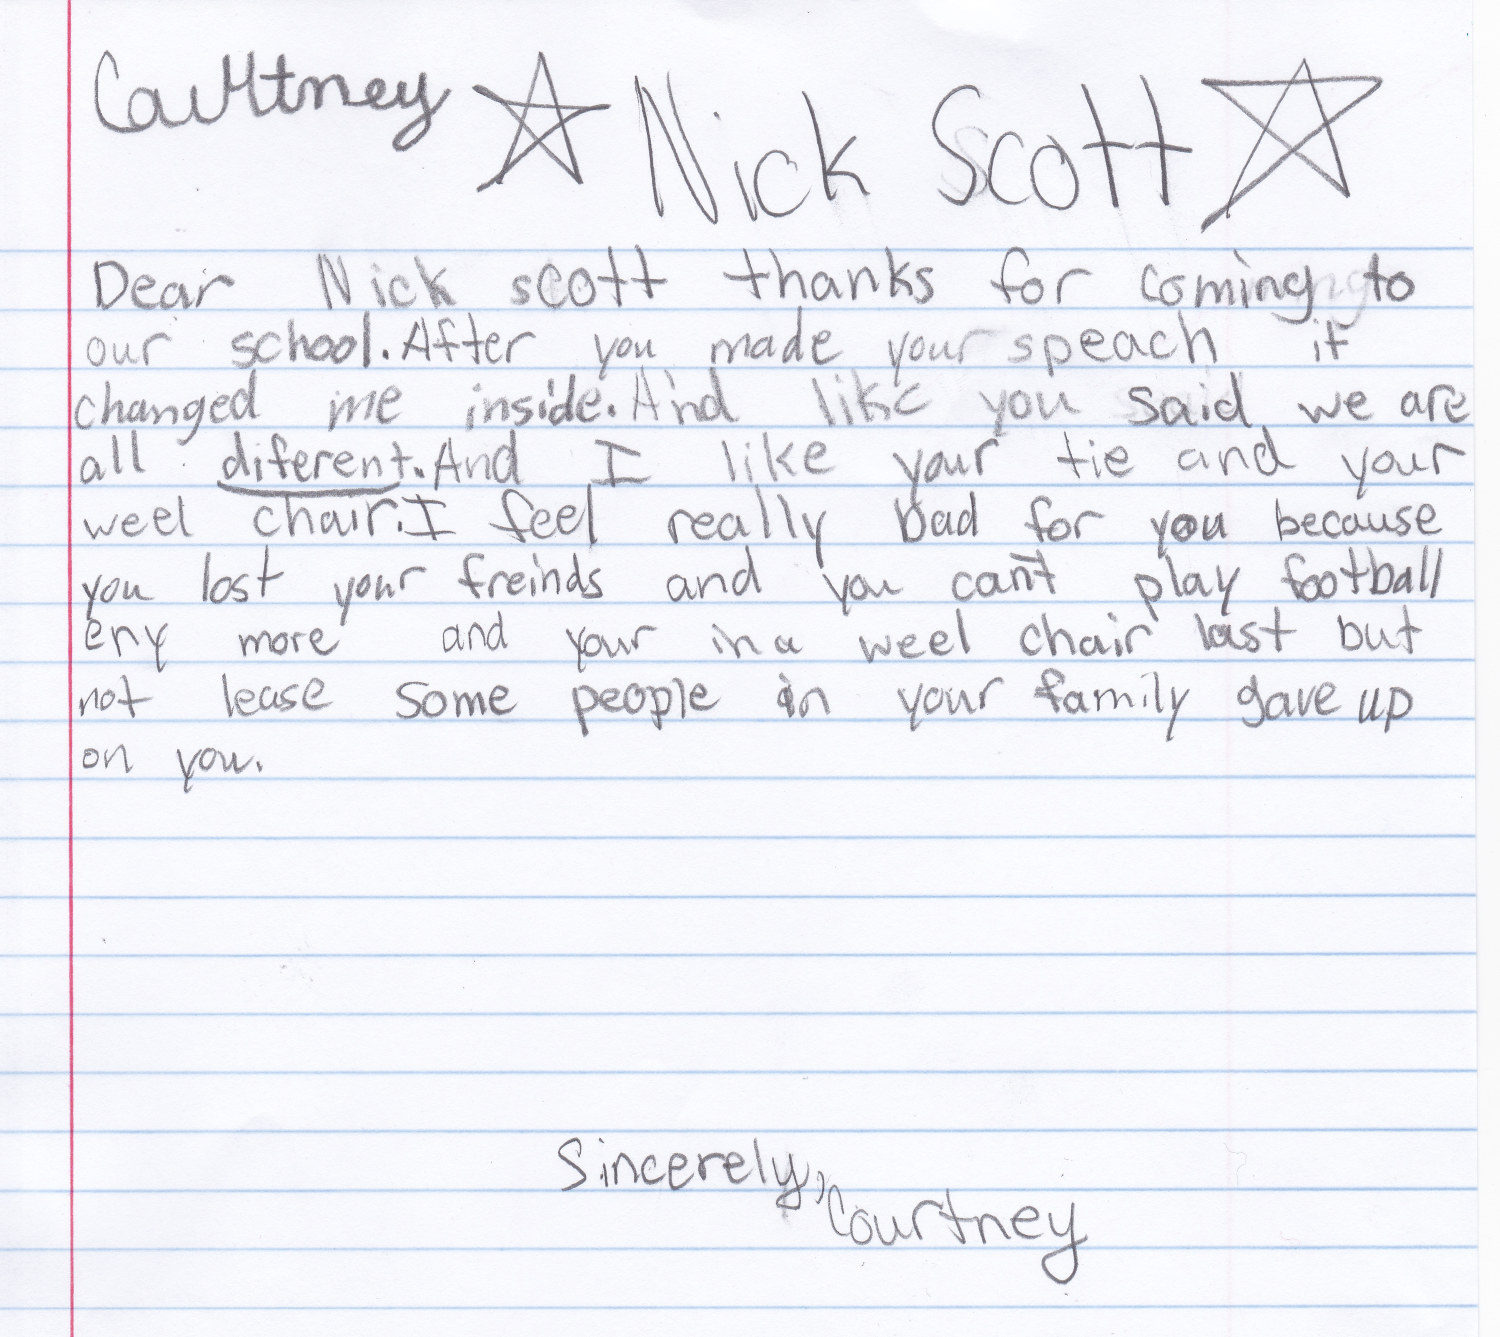 Courtney ☆ Nick Scott ☆
Dear Nick scott thanks for coming to
our school. After you made your speach it
changed me inside. And like you said we are
all diferent. And I like your tie and your
weel chair. I feel really bad for you because
you lost your freinds and you can't play football
eny more and your in a weel chair last but
not lease some people in your family gave up
on you.
Sincerely,
Courtney